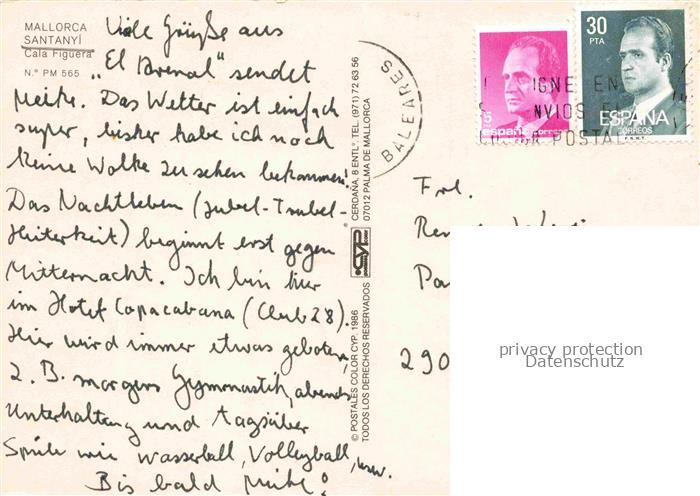 MALLORCA
SANTANYÍ
Cala Figuera
N.º PM 565
Viele Grüße aus
„El Arenal" sendet
Meike. Das Wetter ist einfach
super, bisher habe ich noch
keine Wolke zu sehen bekommen!
Das Nachtleben (Jubel-Trubel-
Heiterkeit) beginnt erst gegen
Mitternacht. Ich bin hier
im Hotel Copacabana (Club 28).
Hier wird immer etwas geboten,
z. B. morgens Gymnastik, abends
Unterhaltung und tagsüber
Spiele wie Wasserball, Volleyball, usw.
Bis bald Meike!
CERDAÑA, 8 ENTLº. TEL. (971) 72 63 56
07012 PALMA DE MALLORCA
CYP
© POSTALES COLOR CYP, 1986
TODOS LOS DERECHOS RESERVADOS
BALEARES
5
españa correos
30
PTA
ESPAÑA
CORREOS
F.N.M.T.
IGNE EN
NVIOS EL
POSTAL
Frl.
290
privacy protection
Datenschutz